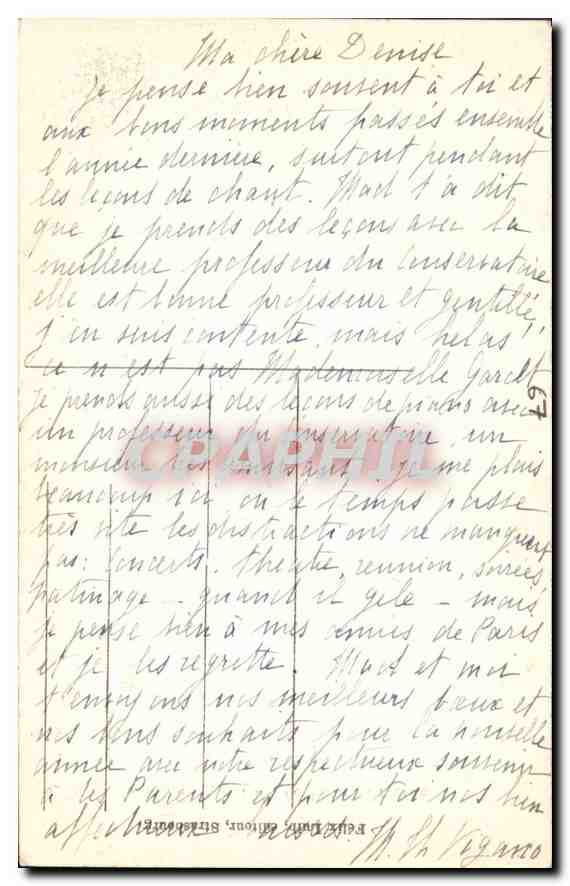 Ma chère Denise
Je pense bien souvent à toi et
aux bons moments passés ensemble
l'année dernière, surtout pendant
les leçons de chant. Mad t'a dit
que je prends des leçons avec la
meilleure professeur du Conservatoire
elle est bonne professeur et gentille,
j'en suis contente, mais helas
ce n'est pas Mademoiselle
je prends aussi des leçons de piano avec
un professeur du Conservatoire, un
monsieur très Je me plais
beaucoup ici où le temps passe
très vite les distractions ne manquent
pas: Concerts, theatre, reunion, soirées,
patinage - quand il gèle - mais
je pense bien à mes amies de Paris
et je les regrette. Mad et moi
t'envoyons nos meilleurs voeux et
nos bons souhaits pour la nouvelle
année avec notre respectueux souvenir
à tes Parents et pour toi nos bien
affectueux M. Th Vigano
67
CPAPHIL
Félix Luib, éditeur, Strasbourg.